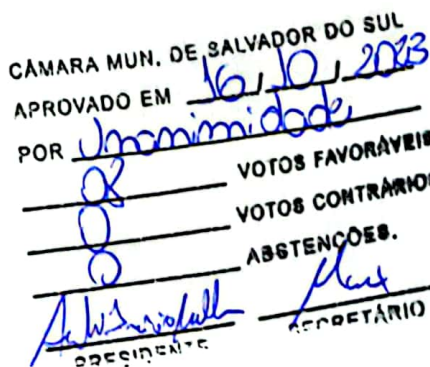 CÂMARA MUN. DE SALVADOR DO SUL
APROVADO EM 16, 10, 2023
POR Unanimidade
08 VOTOS FAVORÁVEIS
0 VOTOS CONTRÁRIOS
0 ABSTENÇÕES.
PRESIDENTE SECRETÁRIO